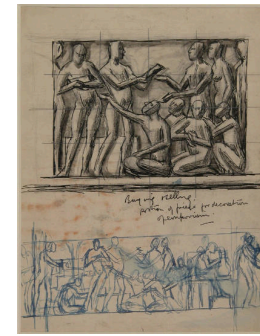 Buying selling
portion of frieze for decoration
of emporium